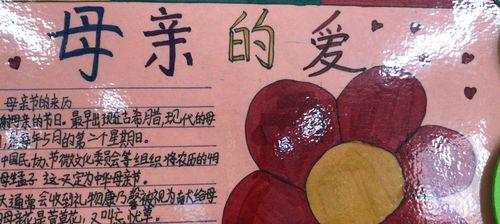 母亲的爱
母亲节的来历
谢母亲的节日。最早出现在古希腊,现代的母
每年5月的第二个星期日。
中国民协节
文化委员会等组织将农历的4月
母孟子 这天定为中华母亲节。
会收到礼物康乃馨被视为献给母
母亲花是萱草花,又叫忘忧草。